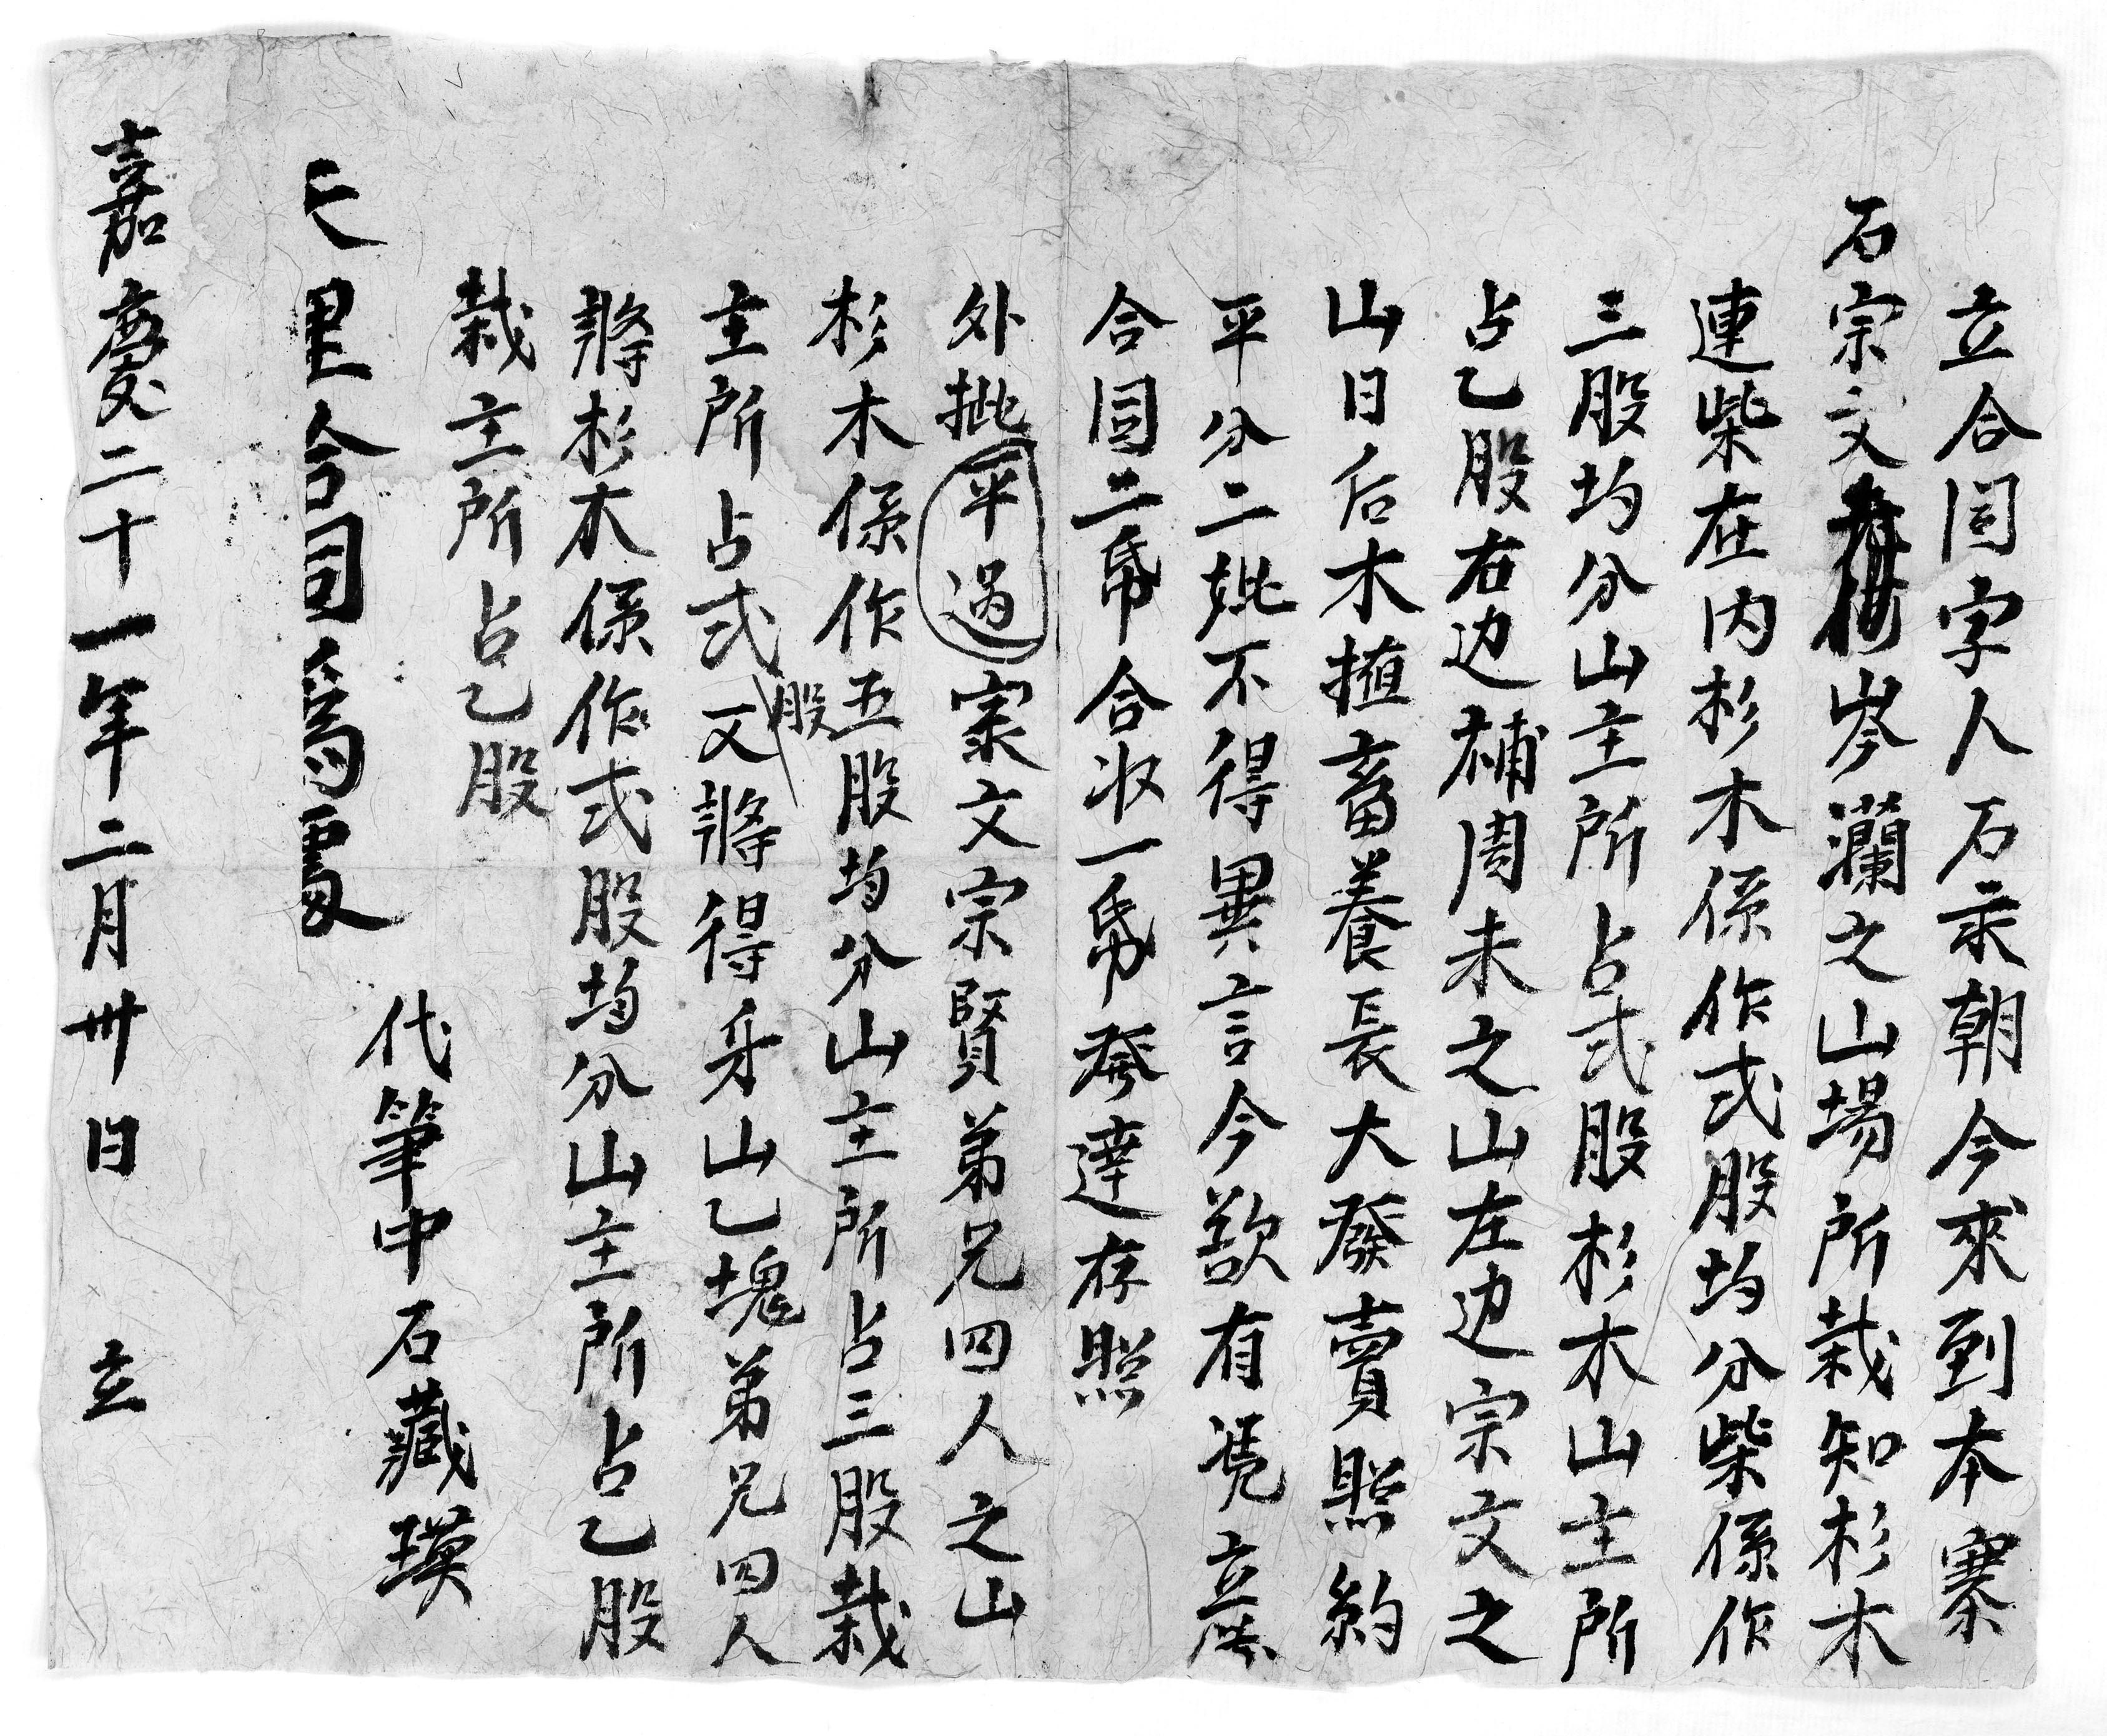 立合同字人石示朝今來到本寨
石宗文岑灡之山塲所栽知杉木
連柴在内杉木係作弍股均分柴係作
三股均分山主所占弍股杉木山主所
占乙股右边補周未之山左边宗文之
山日后木揰畜養長大發賣照約
平分二妣不得異言今欲有凴立
合同二帋合收一帋發達存照
外批平過寨文宗賢弟兄四人之山
杉木係作五股均分山主所占三股栽
主所占弍股文將得牙山乙塊弟兄四人
將杉木係作弍股均分山主所占乙股
栽主所占乙股
代筆中石藏瑛
天里合同爲
嘉慶二十一年二月卅日 立